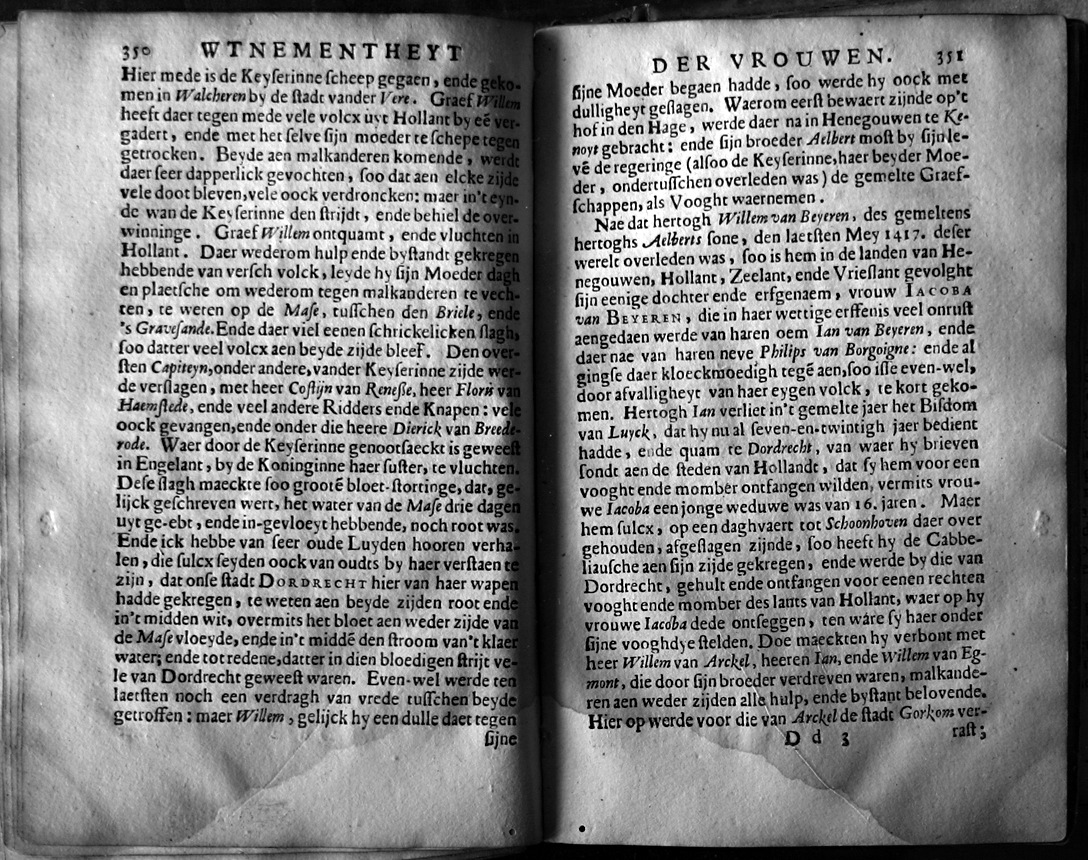 350 WTNEMENTHEYT
Hier mede is de Keyſerinne ſcheep gegaen, ende geko-
men in Walcheren by de ſtadt vander Vere. Graef Willem
heeft daer tegen mede vele volcx uyt Hollant by eẽ ver-
gadert, ende met het ſelve ſijn moeder te ſchepe tegen
getrocken. Beyde aen malkanderen komende, werdt
daer ſeer dapperlick gevochten, ſoo dat aen elcke zijde
vele doot bleven, vele oock verdroncken: maer in't eyn-
de wan de Keyſerinne den ſtrijdt, ende behiel de over-
winninge. Graef Willem ontquamt, ende vluchten in
Hollant. Daer wederom hulp ende byſtandt gekregen
hebbende van verſch volck, leyde hy ſijn Moeder dagh
en plaetſche om wederom tegen malkanderen te vech-
ten, te weren op de Maſe, tuſſchen den Briele, ende
's Graveſande. Ende daer viel eenen ſchrickelicken ſlagh,
ſoo datter veel volcx aen beyde zijde bleef. Den over-
ſten Capiteyn, onder andere, vander Keyſerinne zijde wer-
de verſlagen, met heer Coſtijn van Reneſſe, heer Floris van
Haemſtede, ende veel andere Ridders ende Knapen: vele
oock gevangen, ende onder die heere Dierick van Brede-
rode. Waer door de Keyſerinne genootſaeckt is geweeſt
in Engelant, by de Koninginne haer ſuſter, te vluchten.
Deſe ſlagh maeckte ſoo grootẽ bloet-ſtortinge, dat, ge-
lijck geſchreven wert, het water van de Maſe drie dagen
uyt ge-ebt, ende in-gevloeyt hebbende, noch root was.
Ende ick hebbe van ſeer oude Luyden hooren verha-
len, die ſulcx ſeyden oock van oudts by haer verſtaen te
zijn, dat onſe ſtadt DORDRECHT hier van haer wapen
hadde gekregen, te weten aen beyde zijden root ende
in't midden wit, overmits het bloet aen weder zijde van
de Maſe vloeyde, ende in't middẽ den ſtroom van't klaer
water; ende tot redene, datter in dien bloedigen ſtrijt ve-
le van Dordrecht geweeſt waren. Even-wel werde ten
laetſten noch een verdragh van vrede tuſſchen beyde
getroffen: maer Willem, gelijck hy een dulle daet tegen
ſijne
DER VROUWEN. 351
ſijne Moeder begaen hadde, ſoo werde hy oock met
dulligheyt geſlagen. Waerom eerſt bewaert zijnde op't
hof in den Hage, werde daer na in Henegouwen te Ke-
noyt gebracht: ende ſijn broeder Aelbert moſt by ſijn le-
vẽ de regeringe (alſoo de Keyſerinne, haer beyder Moe-
der, ondertuſſchen overleden was) de gemelte Graef-
ſchappen, als Vooght waernemen.
Nae dat hertogh Willem van Beyeren, des gemeltens
hertoghs Aelberts ſone, den laetſten Mey 1417. deſer
werelt overleden was, ſoo is hem in de landen van He-
negouwen, Hollant, Zeelant, ende Vrieſlant gevolght
ſijn eenige dochter ende erfgenaem, vrouw IACOBA
van BEYEREN, die in haer wettige erffenis veel onruſt
aengedaen werde van haren oem Ian van Beyeren, ende
daer nae van haren neve Philips van Borgoigne: ende al
gingſe daer kloeckmoedigh tegẽ aen, ſoo iſſe even-wel,
door afvalligheyt van haer eygen volck, te kort geko-
men. Hertogh Ian verliet in't gemelte jaer het Biſdom
van Luyck, dat hy nu al ſeven-en-twintigh jaer bedient
hadde, ende quam te Dordrecht, van waer hy brieven
ſondt aen de ſteden van Hollandt, dat ſy hem voor een
vooght ende momber ontfangen wilden, vermits vrou-
we Iacoba een jonge weduwe was van 16. jaren. Maer
hem ſulcx, op een daghvaert tot Schoonhoven daer over
gehouden, afgeſlagen zijnde, ſoo heeft hy de Cabbe-
liauſche aen ſijn zijde gekregen, ende werde by die van
Dordrecht, gehult ende ontfangen voor eenen rechten
vooght ende momber des lants van Hollant, waer op hy
vrouwe Iacoba dede ontſeggen, ten ware ſy haer onder
ſijne vooghdye ſtelden. Doe maeckten hy verbont met
heer Willem van Arckel, heeren Ian, ende Willem van Eg-
mont, die door ſijn broeder verdreven waren, malkande-
ren aen weder zijden alle hulp, ende byſtant belovende.
Hier op werde voor die van Arckel de ſtadt Gorkom ver-
D d 3 raſt;